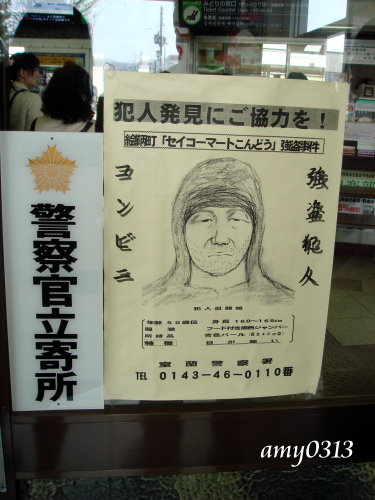 みどりの窓口
Ticket Counter
犯人発見にご協力を!
「セイコーマートこんどう」強盗事件
コンビニ
強盗犯人
犯人似顔絵
年齢 50歳位 身長 160~165cm
服装 フード付き
所持品 青色バール
特徴 目が細い
室蘭警察署
TEL 0143-46-0110番
警察官立寄所
amy0313